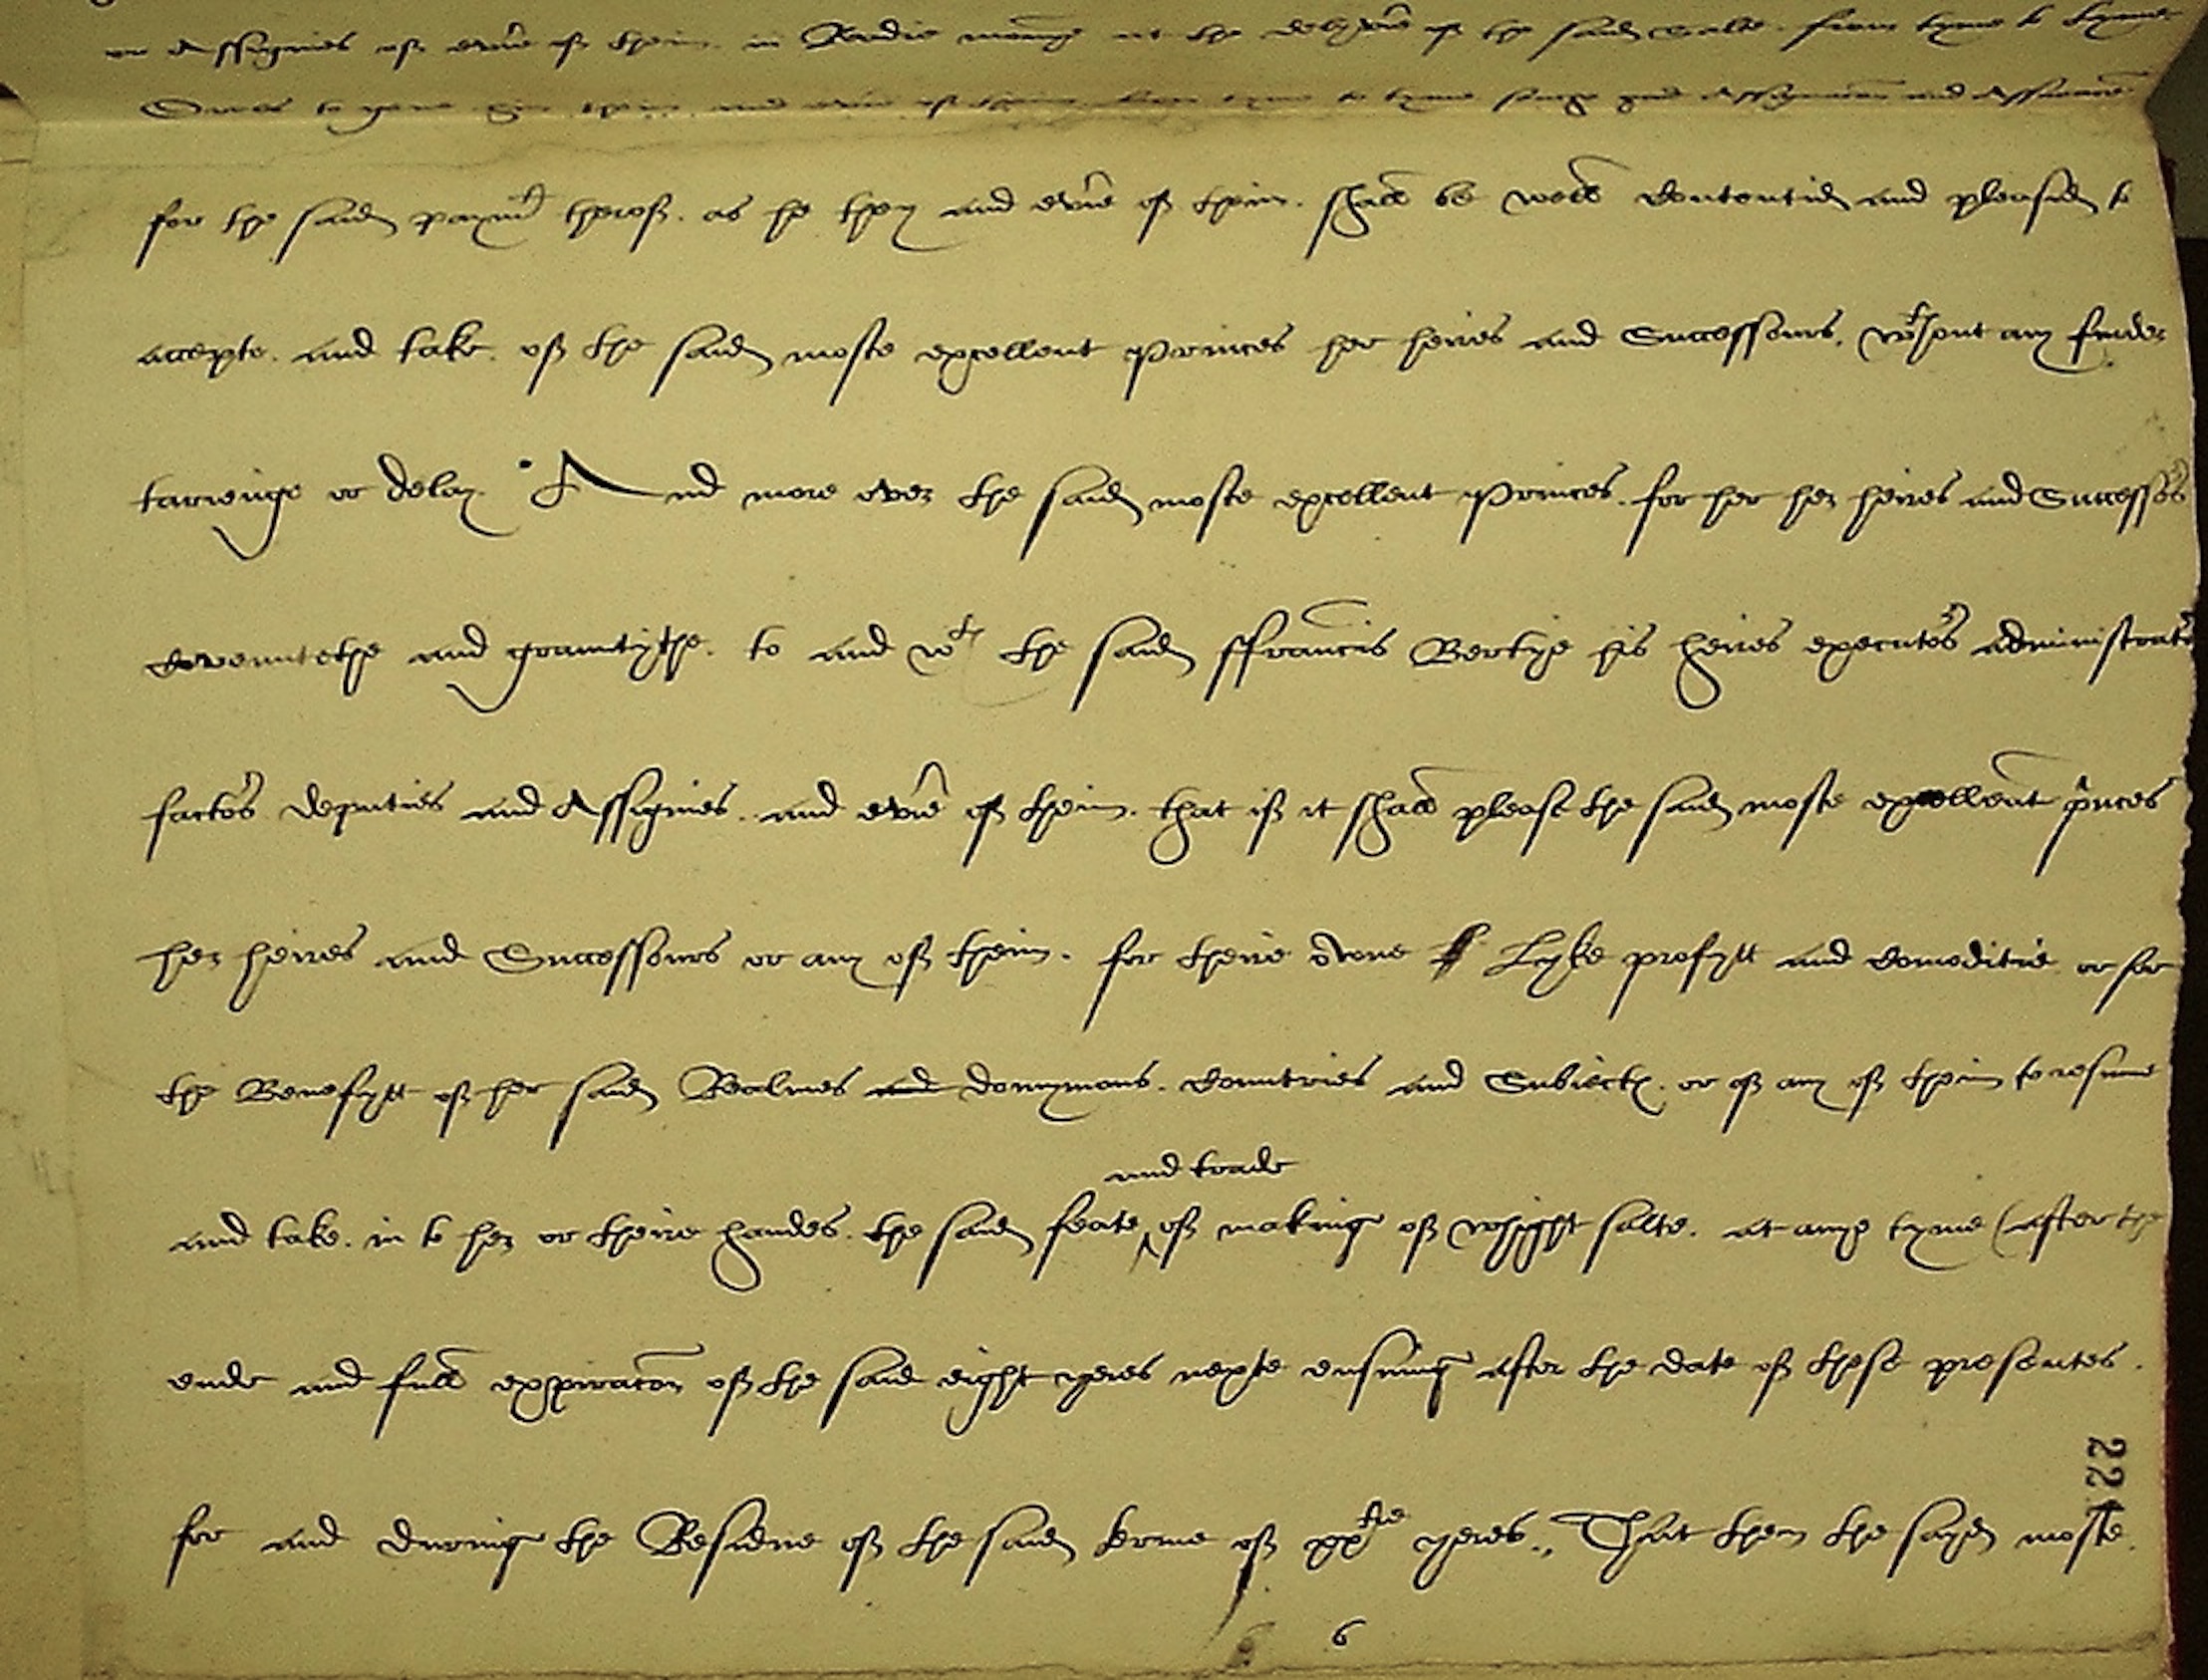 or Assignies off eu'ie off theim in Redie money at the delyu'ie off the saied Salte. from tyme to tyme
to theim and eu'ie off theim from tyme to tyme suche good Assignmen and Assurance
for the saied paymt theroff. as he they and eu'ie off theim. shall be well Contentid and pleasid to
accepte. and take. off the saied moste excellent Princes her heires and Successours. wthout any further
tarienge or delay. And more over the saied moste excellent Princes. for her her heires and Successors
Covenntethe and grauntythe. to and wth the saied ffrauncis Bertye his heires executors administrators
factors deputies and Assignies. and eu'ie off theim. that iff it shall please the saied moste excellent princes
her heires and Successours or any off theim. for theire owne Lyke profytt and Comoditie or for
the Benefytt off her saied Realmes and domynions. Countries and Subiectes. or off any off theim to resume
and trade
and take. in to her or theire handes. the saied feate ^ off makinge off whight salte. at anye tyme (after the
ende and full expiracon off the saied eight yeres nexte ensuing after the date off these presentes.
for and during the Residue off the saied terme off xxtie yeres., That then the sayed moste.
221
6 6